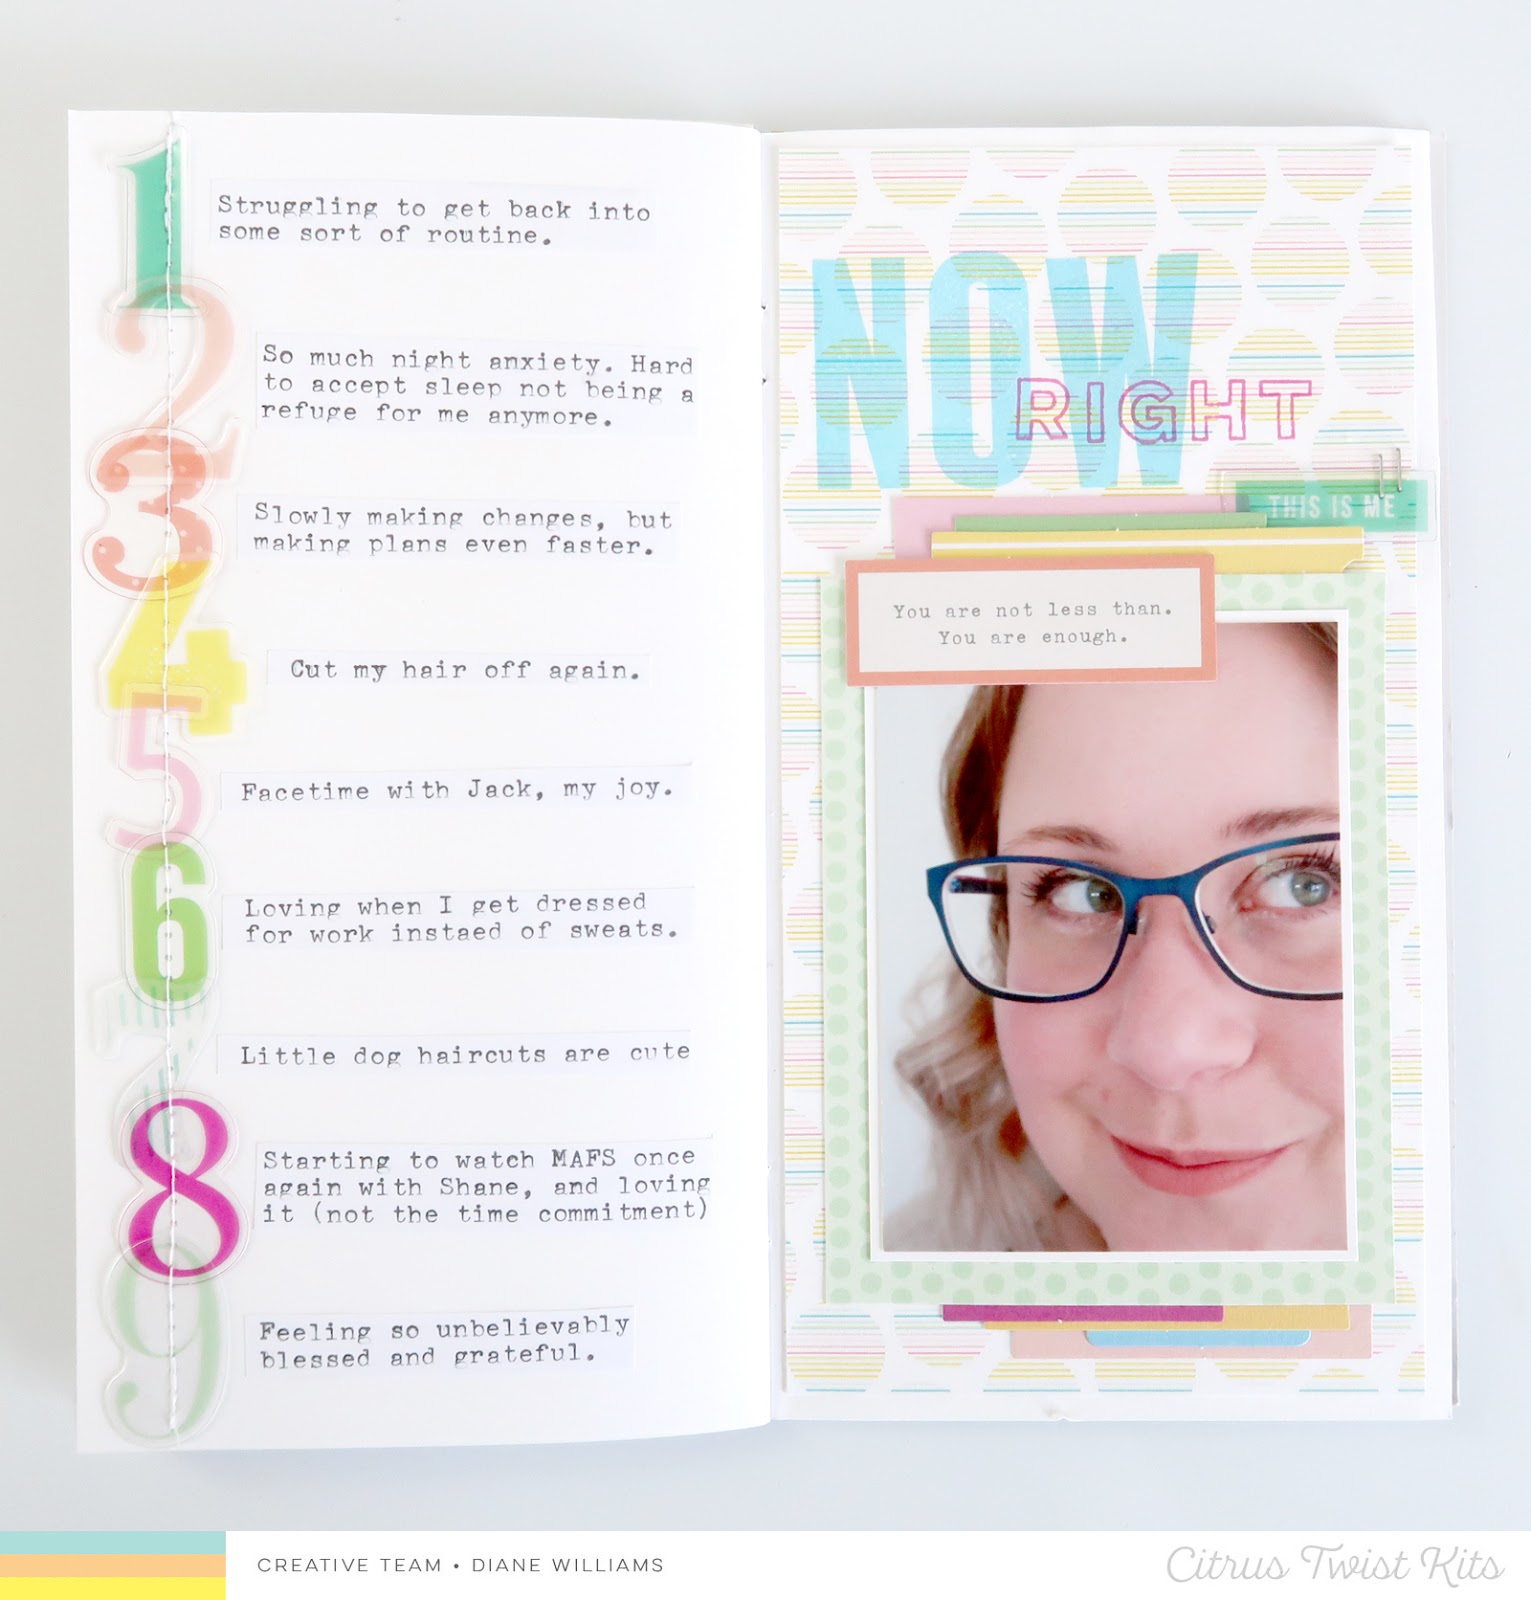 1
Struggling to get back into
some sort of routine.
2
So much night anxiety. Hard
to accept sleep not being a
refuge for me anymore.
3
Slowly making changes, but
making plans even faster.
4
Cut my hair off again.
5
Facetime with Jack, my joy.
6
Loving when I get dressed
for work instaed of sweats.
7
Little dog haircuts are cute
8
Starting to watch MAFS once
again with Shane, and loving
it (not the time commitment)
9
Feeling so unbelievably
blessed and grateful.
NOW
RIGHT
THIS IS ME
You are not less than.
You are enough.
CREATIVE TEAM • DIANE WILLIAMS
Citrus Twist Kits